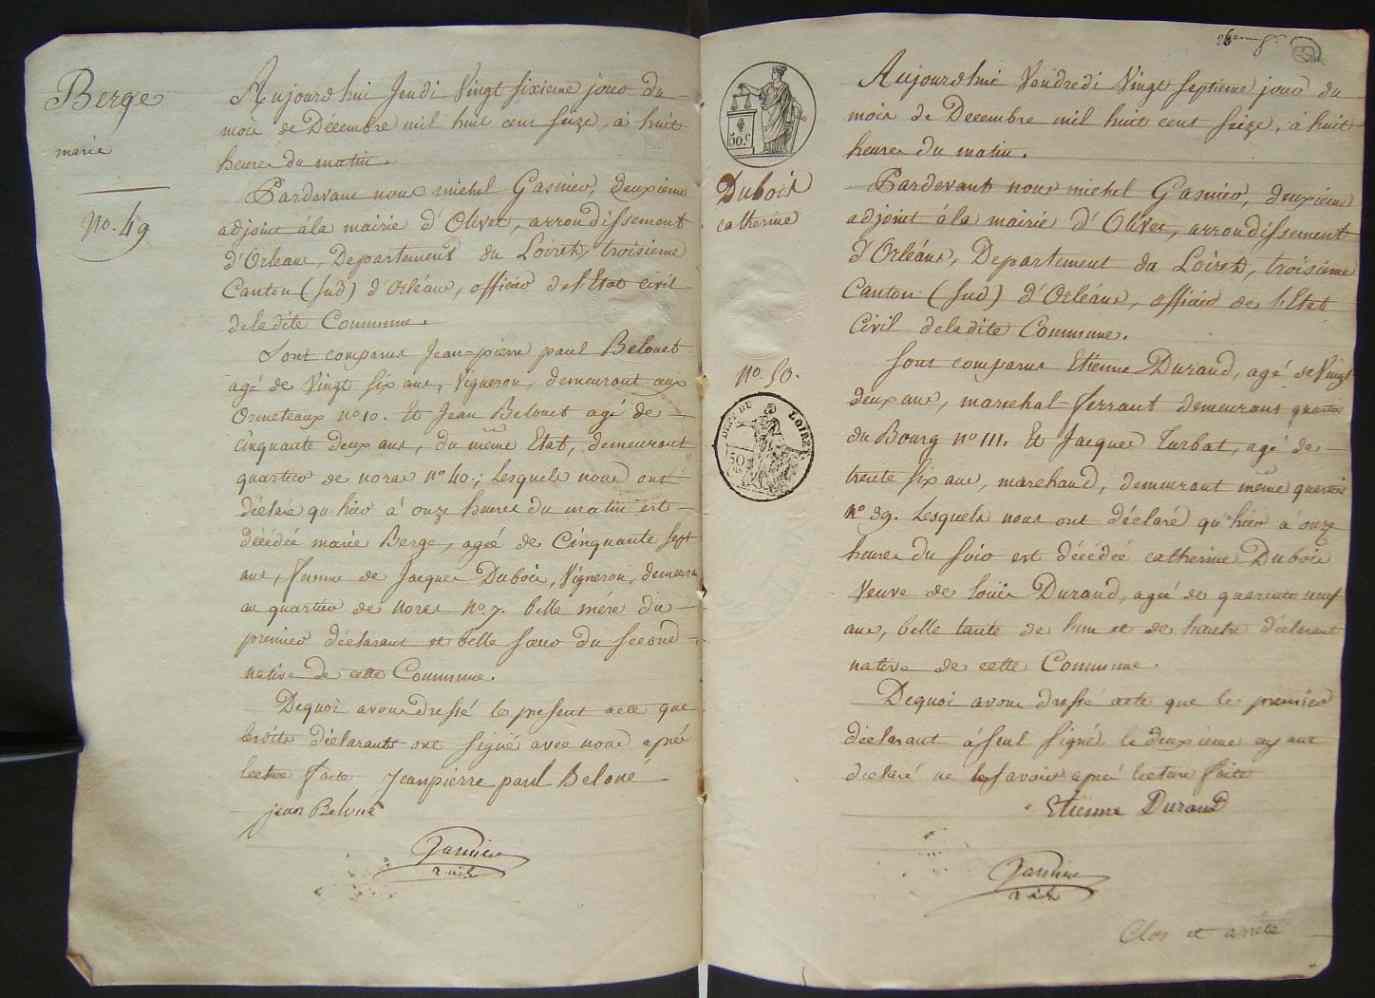 Berge
marie
No. 49
Aujourdhui Jeudi Vingt sixieme jour du
mois de Décembre mil huit cent seize, à huit
heures du matin.
Pardevant nous michel Gasnier, deuxieme
adjoint à la mairie d'Olivet, arrondissement
d'Orleans, Departement du Loiret, troisieme
Canton (sud) d'Orléans, officier de l'Etat civil
de la dite Commune.
Sont comparus Jean-pierre paul Belouet
agé de Vingt six ans, Vigneron, demeurant aux
Ormeteaux no 10. Et Jean Belouet agé de
cinquante deux ans, du même Etat, demeurant
quartier de noras no 40; lesquels nous ont
déclaré qu'hier à onze heures du matin est
décédée marie Berge, agée de Cinquante sept
ans, femme de Jacques Dubois, Vigneron, demeurant
au quartier de noras No. 7. belle mère du
premier déclarant et belle sœur du second
native de cette Commune.
Dequoi avons dressé le present acte que
lesdits déclarants ont signé avec nous après
lecture faite Jeanpierre paul Beloué
jean Beloué
Gasnier
adj
Dubois
catherine
50 c
no 50.
DEPT DU LOIRET
50
Aujourdhui Vendredi Vingt septieme jour du
mois de Decembre mil huit cent seize, à huit
heures du matin.
Pardevant nous michel Gasnier, deuxieme
adjoint à la mairie d'Olivet, arrondissement
d'Orléans, Departement du Loiret, troisieme
Canton (sud) d'Orléans, officier de l'Etat
Civil de la dite Commune.
Sont comparus Etienne Durand, agé de Vingt
deux ans, marechal ferrant demeurant quartier
du Bourg no 111. Et Jacques Turbat, agé de
trente six ans, marchand, demeurant même quartier
no 39. Lesquels nous ont déclaré qu'hier à onze
heures du soir est décédée catherine Dubois
Veuve de louis Durand, agée de quarante neuf
ans, belle tante de l'un et de l'autre déclarant
native de cette Commune.
Dequoi avons dressé acte que le premier
déclarant à seul signé le deuxieme ayant
declaré ne le savoir après lecture faite
Etienne Durand
Gasnier
adj
Clos et arreté